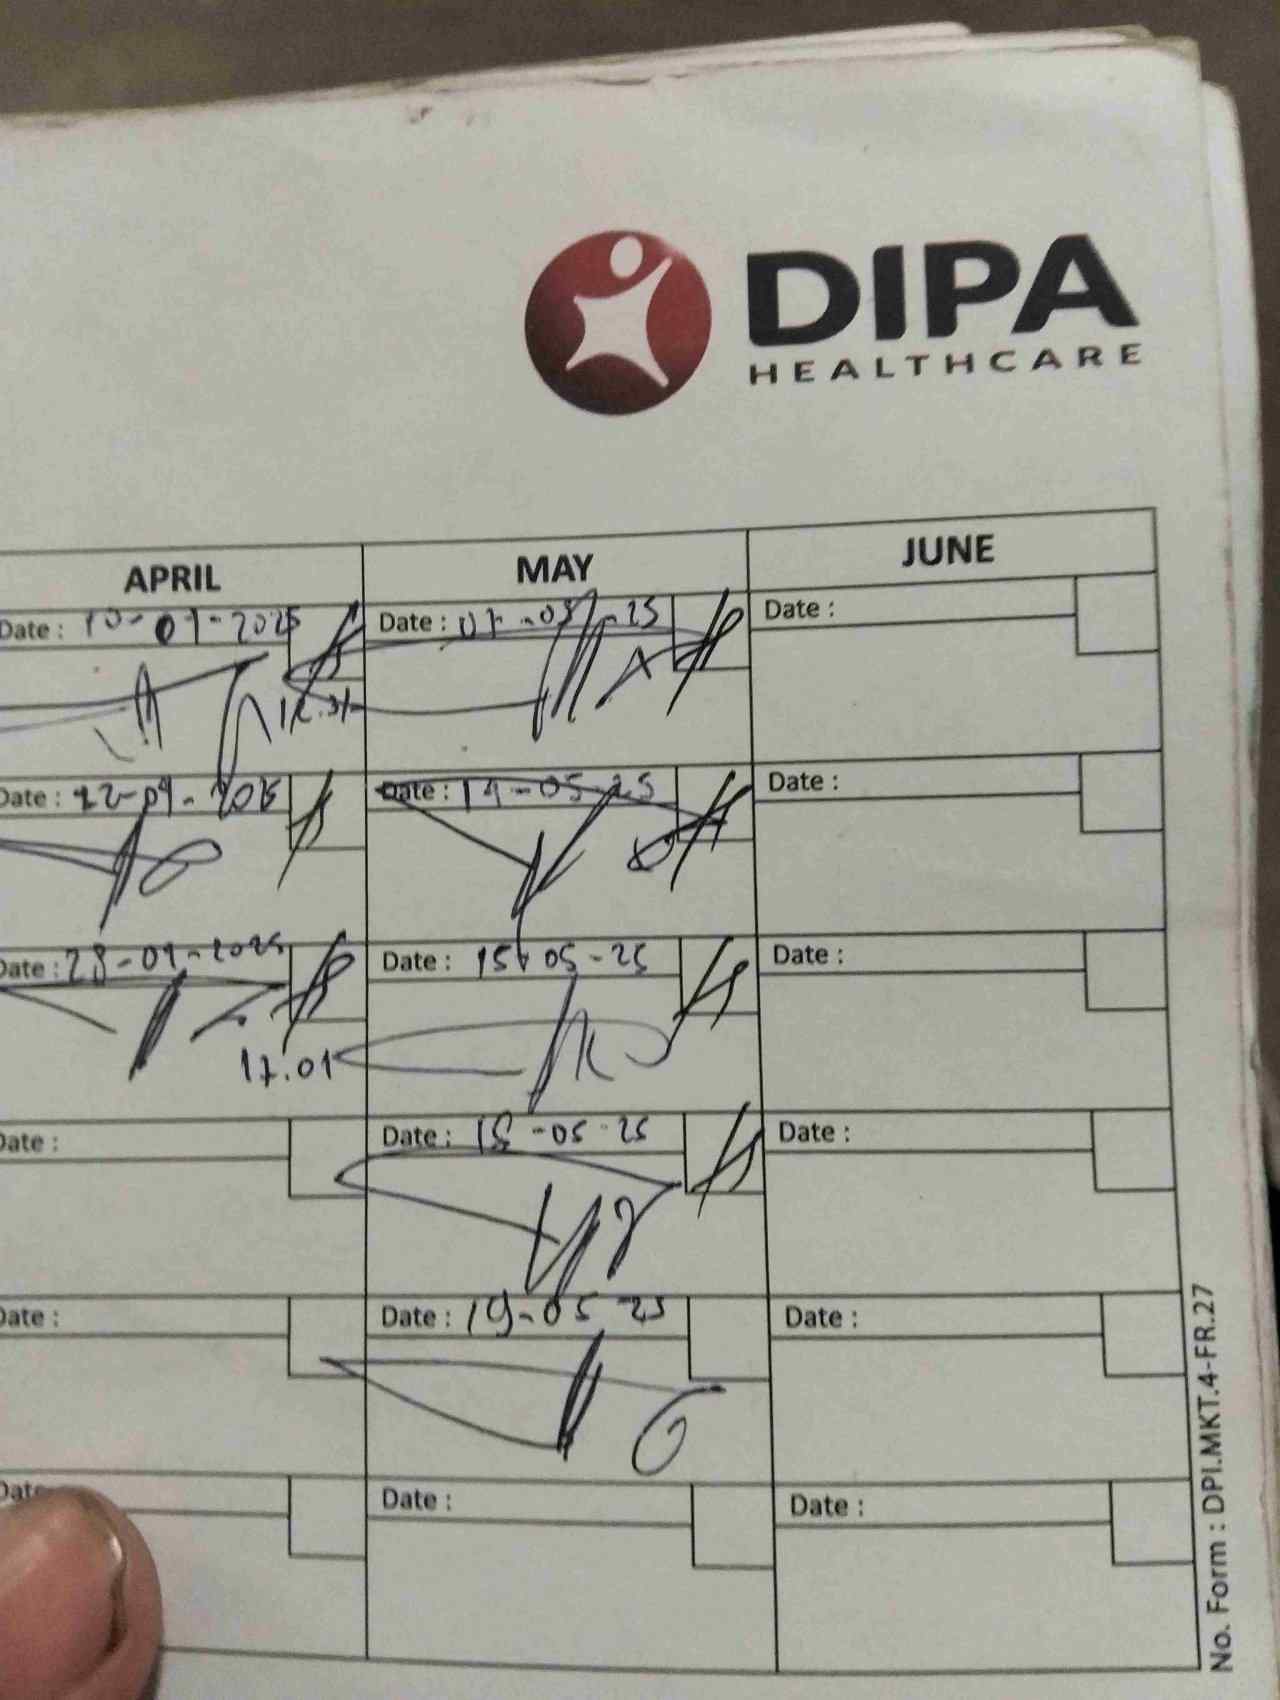 DIPA
HEALTHCARE
APRIL MAY JUNE
Date : 10-04-2025 Date : 07-05-25 Date :
Date : 22-04-2025 Date : 14-05-25 Date :
Date : 28-04-2025 Date : 15-05-25 Date :
17.01
Date : Date : 18-05-25 Date :
Date : Date : 19-05-25 Date :
Date : Date : Date :
No. Form : DPI.MKT.4-FR.27